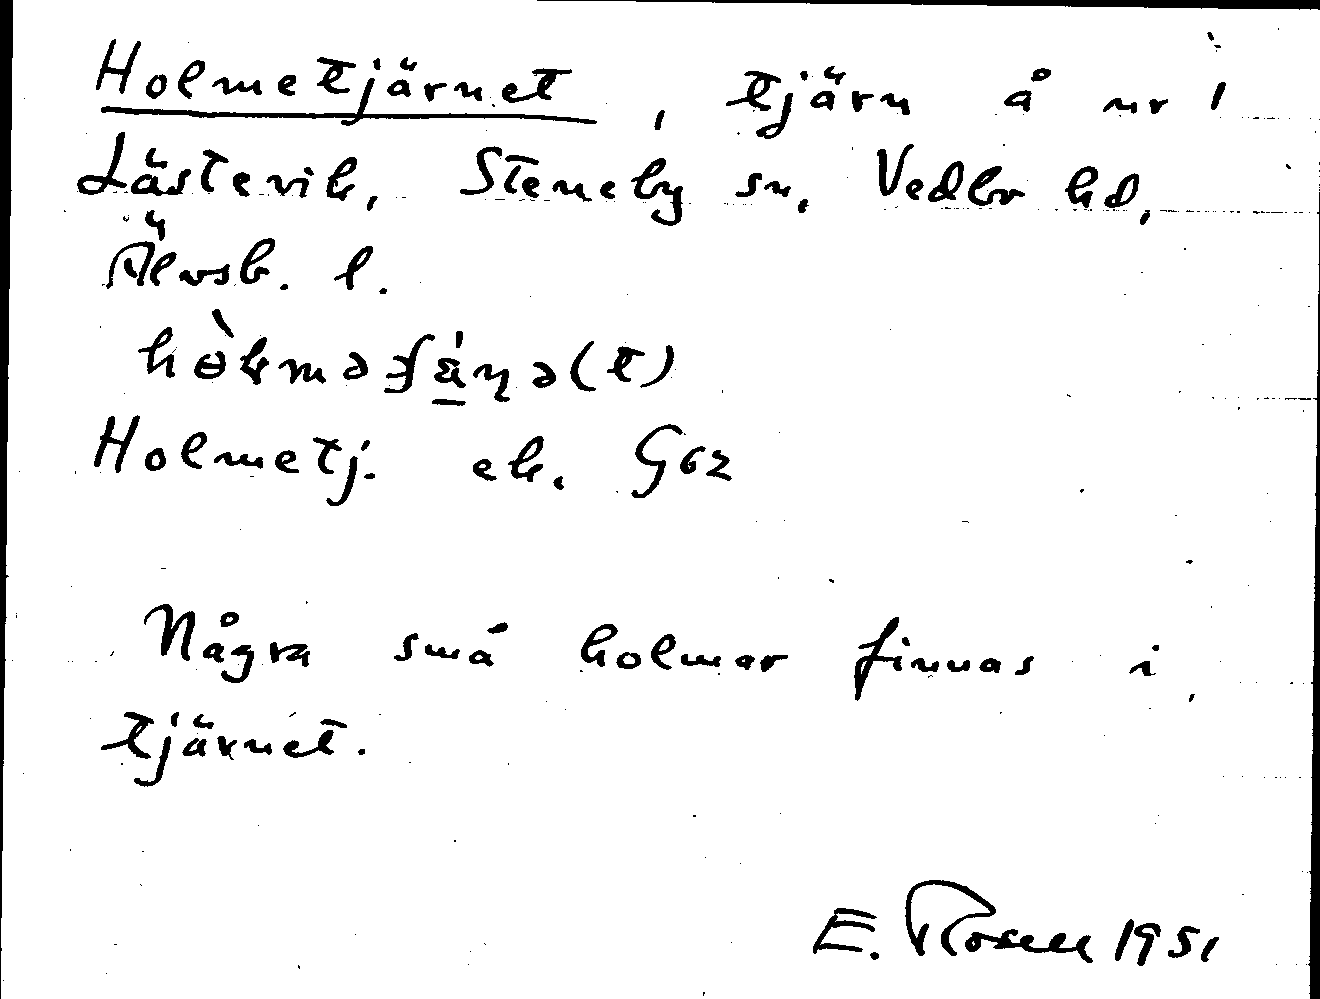 Holmetjärnet, tjärn å nr 1
Lästevik, Steneby sn, Vedbo hd,
Älvsb. l.
Holmetj. ek. G62
Några små holmar finnas i
tjärnet.
E. Rosell 1951